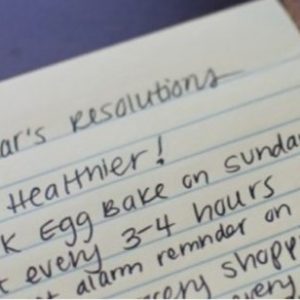 ar's resolutions
Healthier!
K Egg Bake on Sunda
t every 3-4 hours
t alarm reminder on
cery shopp
very